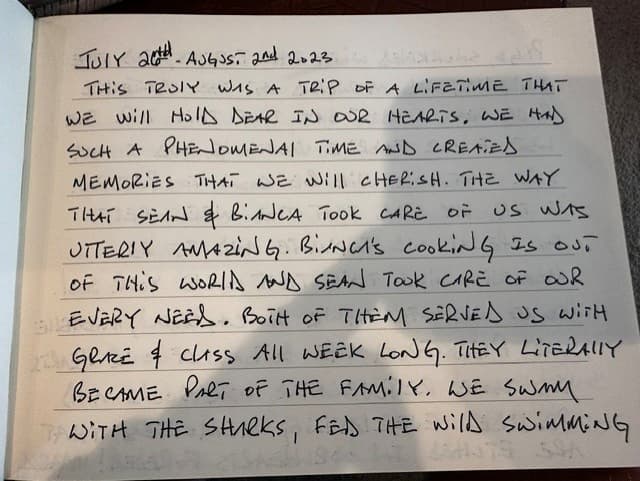 JULY 26th - AUGUST 2nd 2023
THIS TRULY WAS A TRIP OF A LIFETIME THAT
WE WILL HOLD DEAR IN OUR HEARTS. WE HAD
SUCH A PHENOMENAL TIME AND CREATED
MEMORIES THAT WE WILL CHERISH. THE WAY
THAT SEAN & BIANCA TOOK CARE OF US WAS
UTTERLY AMAZING. BIANCA'S COOKING IS OUT
OF THIS WORLD AND SEAN TOOK CARE OF OUR
EVERY NEED. BOTH OF THEM SERVED US WITH
GRACE & CLASS ALL WEEK LONG. THEY LITERALLY
BECAME PART OF THE FAMILY. WE SWAM
WITH THE SHARKS, FED THE WILD SWIMMING